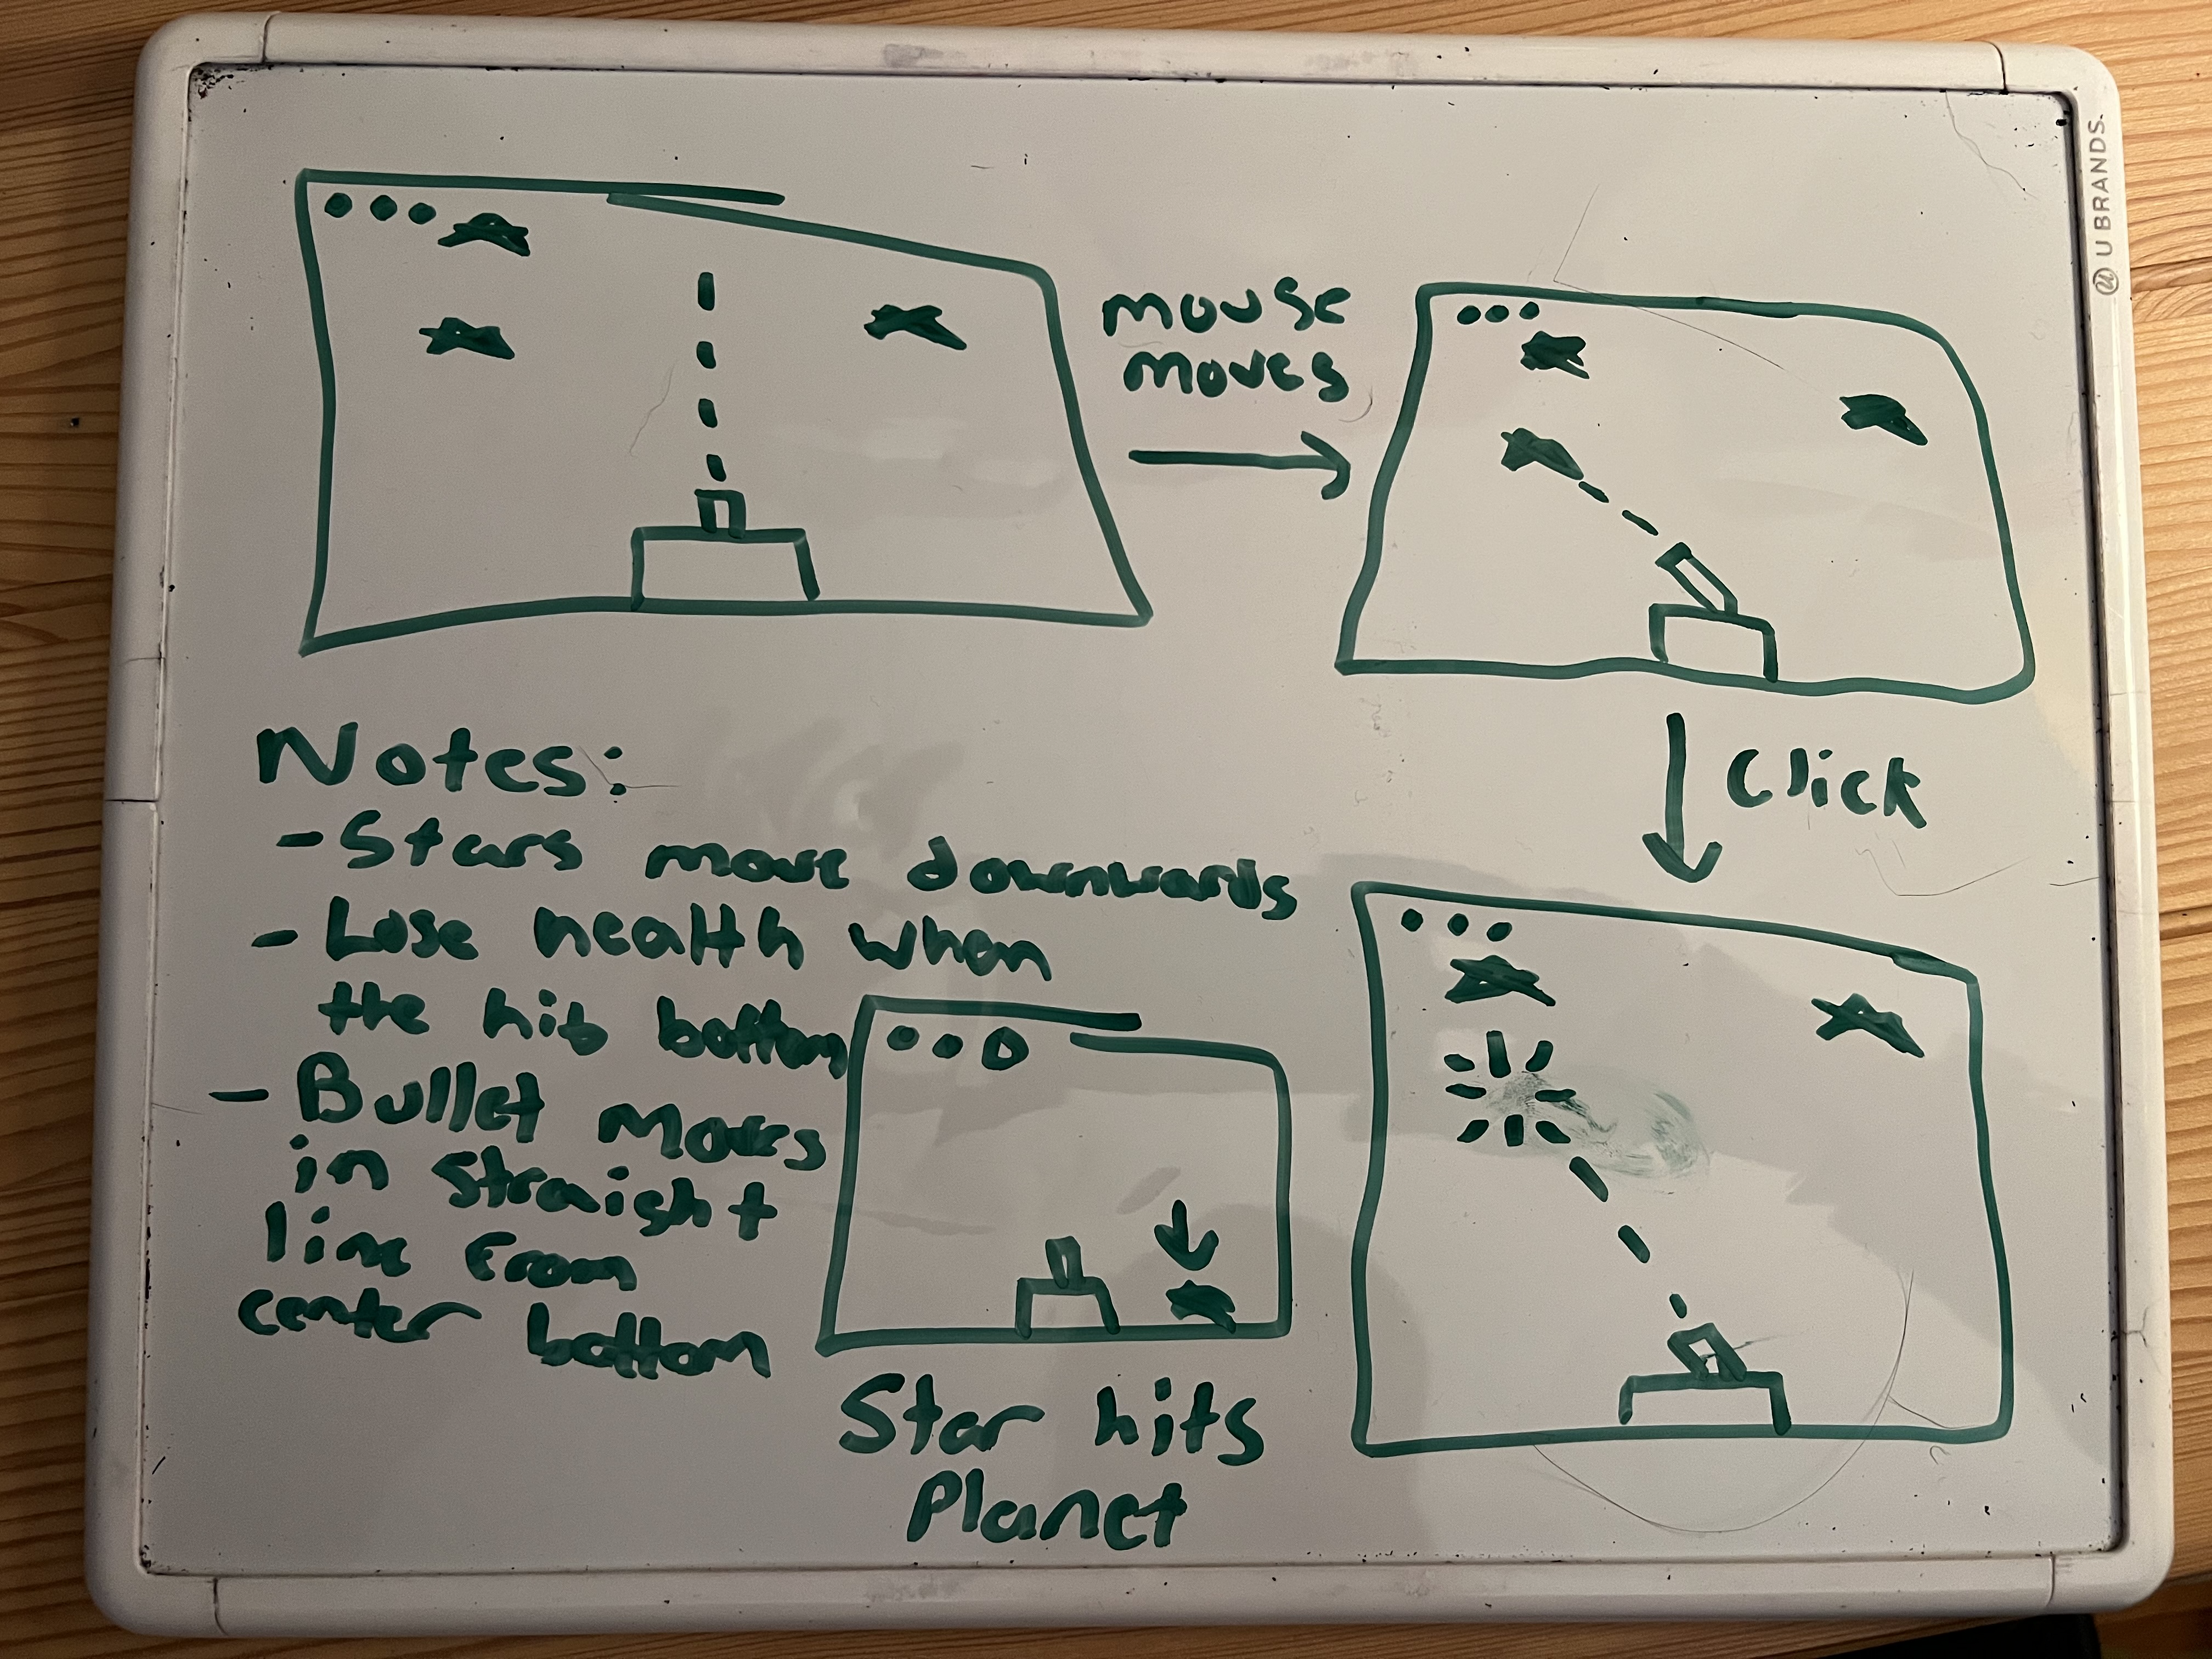 U BRANDS
mouse
moves
Click
Notes:
- Stars move downwards
- Lose health when
the hit bottom
- Bullet moves
in straight
line from
center bottom
Star hits
Planet